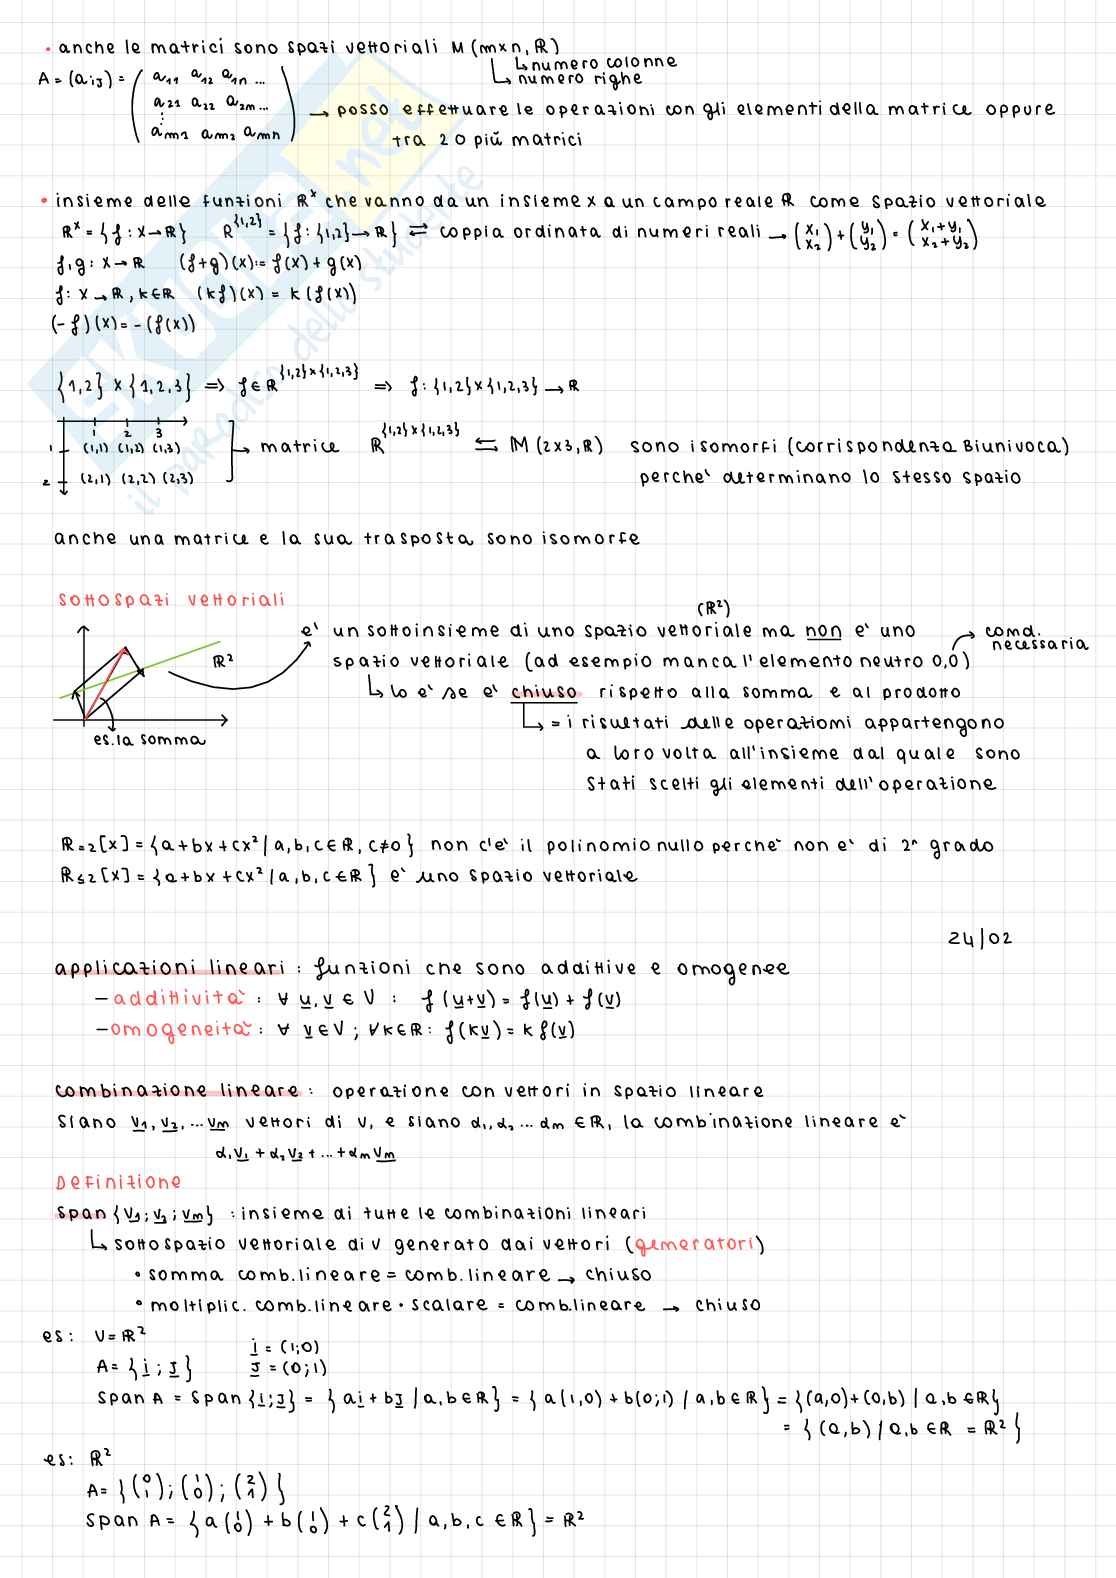 • anche le matrici sono spazi vettoriali M (m×n, ℝ)
↳ numero colonne
↳ numero righe
A = (aij) = ( a11 a12 a1n ...
a21 a22 a2m ...
⋮
am1 am2 amn ) → posso effettuare le operazioni con gli elementi della matrice oppure
tra 2 o più matrici
• insieme delle funzioni ℝˣ che vanno da un insieme x a un campo reale ℝ come spazio vettoriale
ℝˣ = {f : X → ℝ} ℝ^{1,2} = {f : {1,2} → ℝ} ⇄ coppia ordinata di numeri reali → (x1 x2) + (y1 y2) = (x1+y1 x2+y2)
f,g : X → ℝ (f+g)(x) := f(x) + g(x)
f : X → ℝ, k∈ℝ (kf)(x) = k (f(x))
(-f)(x) = -(f(x))
{1,2} × {1,2,3} ⇒ f∈ℝ^{1,2}×{1,2,3} ⇒ f : {1,2}×{1,2,3} → ℝ
1 2 3
1 (1,1) (1,2) (1,3) → matrice ℝ^{1,2}×{1,2,3} ⇆ M (2×3, ℝ) sono isomorfi (corrispondenza Biunivoca)
2 (2,1) (2,2) (2,3) perche' determinano lo stesso spazio
anche una matrice e la sua trasposta sono isomorfe
sottospazi vettoriali
(ℝ²)
e' un sottoinsieme di uno spazio vettoriale ma non e' uno
→ comd. necessaria
ℝ² spazio vettoriale (ad esempio manca l'elemento neutro 0,0)
↳ lo e' se e' chiuso rispetto alla somma e al prodotto
↳ = i risultati delle operaziomi appartengono
es. la somma
a loro volta all'insieme dal quale sono
stati scelti gli elementi dell'operazione
ℝ=2[x] = {a+bx+cx² / a,b,c∈ℝ, c≠0} non c'e' il polinomio nullo perche' non e' di 2^ grado
ℝ≤2[x] = {a+bx+cx² / a,b,c∈ℝ} e' uno spazio vettoriale
24/02
applicazioni lineari : funzioni che sono addittive e omogenee
- addittivita' : ∀ u, v ∈ V : f (u+v) = f(u) + f(v)
- omogeneita' : ∀ v∈V ; ∀k∈ℝ : f(kv) = k f(v)
combinazione lineare : operazione con vettori in spazio lineare
siano v1, v2, ... vm vettori di V, e siano α1, α2 ... αm ∈ℝ, la combinazione lineare e'
α1v1 + α2v2 + ... + αmvm
Definizione
span {v1; v2; vm} : insieme di tutte le combinazioni lineari
↳ sottospazio vettoriale di v generato dai vettori (gemeratori)
• somma comb.lineare = comb.lineare → chiuso
• moltiplic. comb.lineare • scalare = comb.lineare → chiuso
es: V = ℝ²
i = (1;0)
A = {i ; j} j = (0;1)
span A = span {i;j} = {ai + bj / a,b∈ℝ} = {a(1,0) + b(0;1) / a,b∈ℝ} = {(a,0)+(0,b) / a,b∈ℝ}
= {(a,b) / a,b ∈ℝ = ℝ²}
es: ℝ²
A = {(0 1) ; (1 0) ; (2 1)}
span A = {a(1 0) + b(1 0) + c(2 1) / a,b,c ∈ℝ} = ℝ²